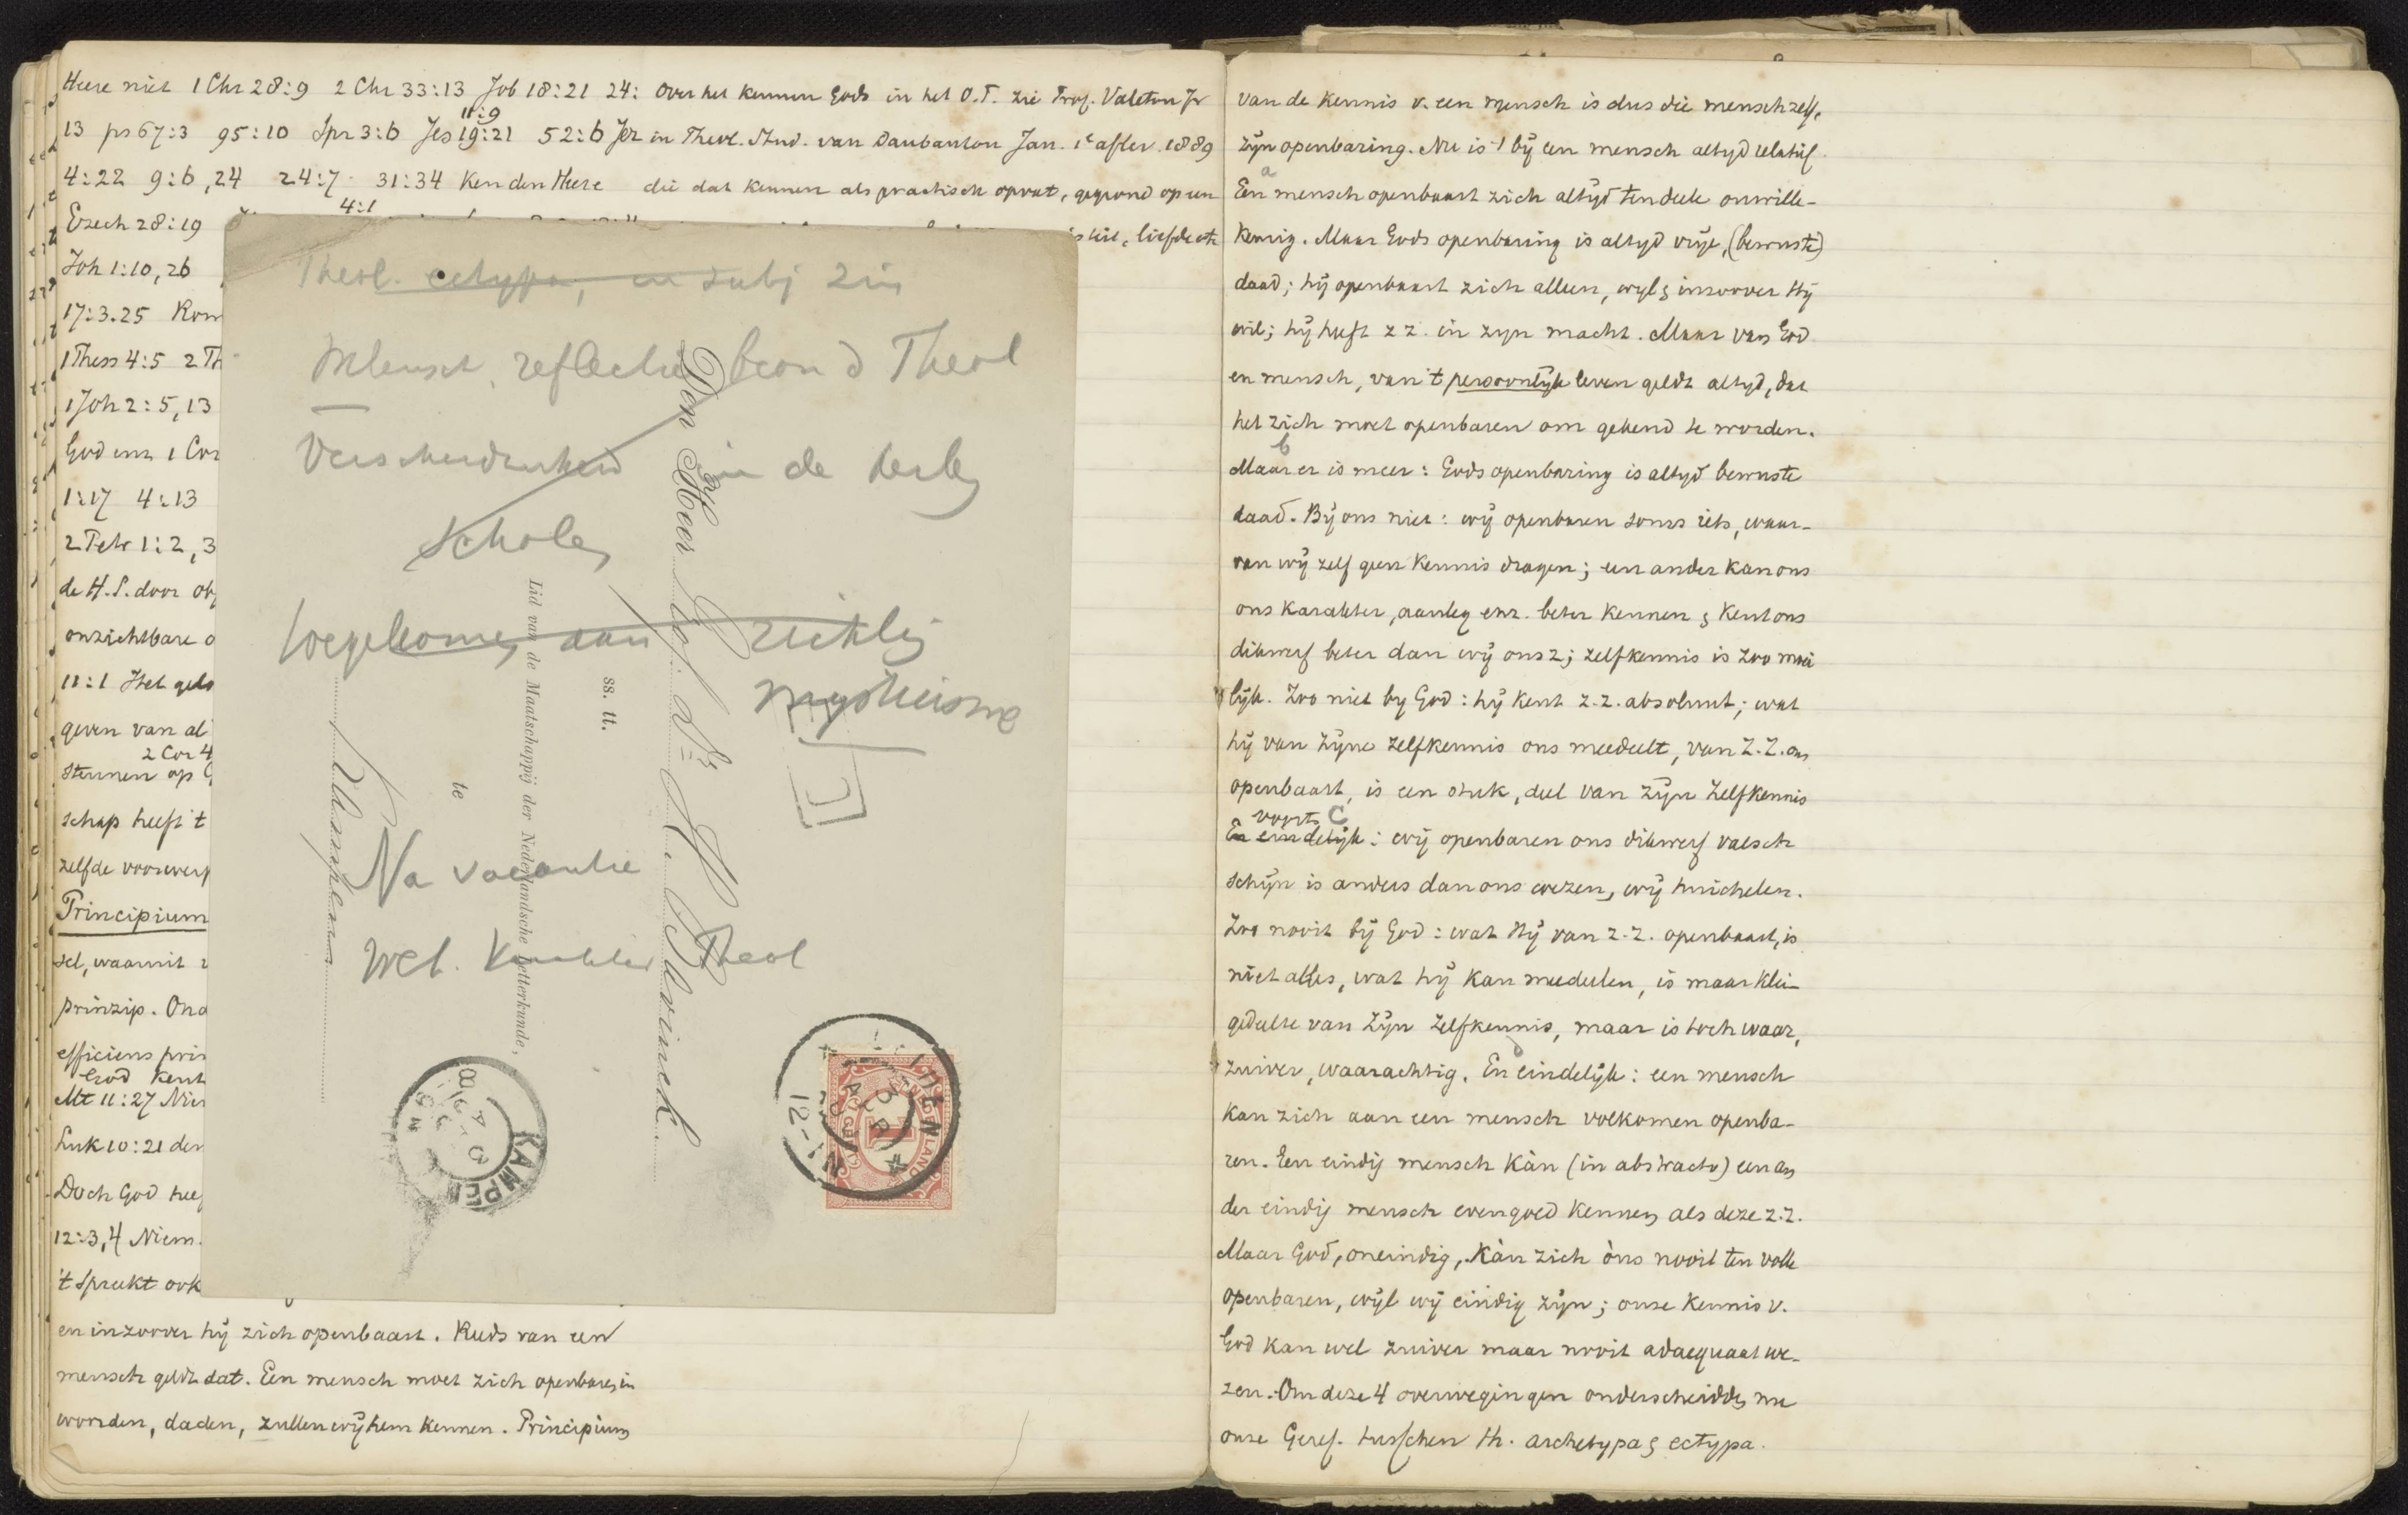 Heere niet 1 Chr 28:9 2 Chr 33:13 Job 18:21 24:
11:9
13 ps 67:3 95:10 Spr 3:6 Jes 19:21 52:6 Jer
4:22 9:6,24 24:7 31:34 Ken den Heere
4:1
Ezech 28:19
Joh 1:10, 26
17:3.25 Rom
1 Thess 4:5 2 Th
1 Joh 2:5,13
God enz 1 Cor
1:17 4:13
2 Petr 1:2,3
de H.S. door obj
onzichtbare o
11:1 Het gelo
geven van al
2 Cor 4
steunen op G
schap heeft 't
zelfde voorwerp
Principium
sel, waaruit
prinzip. Ond
efficiens prin
God kent
Mt 11:27 Nie
Luk 10:21 der
Doch God hee
12:3,4 Niem.
't Spreekt ook
en inzoover hij zich openbaart. Reeds van een
mensch geldt dat. Een mensch moet zich openbaren, in
woorden, daden, zullen wij hem kennen. Principium
Over het kennen Gods in het O.T. zie Prof. Valeton Jr
in Theol. Stud. van Daubanton Jan. 1e aflev. 1889
die dat kennen als practisch opvat, gegrond op een
liefde etc
Theol. ectypa, in subj zin
Mensch. reflectie beoon d Theol
Verscheidenheid in de kerk
scholen
toegekomen aan richting
mysticisme
Na vacantie
Wet. Karakter Theol
Den Heer Prof. Dr. H. Bavinck
Lid van de Maatschappij der Nederlandsche Letterkunde,
ss. tt.
te
Kampen
KAMPEN
NEDERLAND
1
CENT
12-1N
van de kennis v. een mensch is dus die mensch zelf,
zijn openbaring. Nu is 't bij een mensch altyd relatief.
a
Een mensch openbaart zich altyd ten deele onwille-
keurig. Maar Gods openbaring is altyd vrije, (bewuste)
daad; hij openbaart zich alleen, wyl & inzoover Hij
wil; hij heeft z z. in zyn macht. Maar van God
en mensch, van 't persoonlijk leven geldt altyd, dat
het zich moet openbaren om gekend te worden.
b
Maar er is meer: Gods openbaring is altyd bewuste
daad. Bij ons niet: wij openbaren soms iets, waar-
van wij zelf geen kennis dragen; een ander kan ons
ons karakter, aanleg enz. beter kennen & kent ons
dikwerf beter dan wij ons z; zelfkennis is zoo moei
lijk. Zoo niet by God: hij kent z.z. absoluut; wat
hij van zijne zelfkennis ons meedeelt, van z.z. ons
openbaart, is een stuk, deel van zijn zelfkennis
voorts C
En eindelijk: wij openbaren ons dikwerf valsch
schijn is anders dan ons wezen, wij huichelen.
Zoo nooit bij God: wat Hij van z.z. openbaart, is
niet alles, wat hij kan meedeelen, is maar klei-
gedeelte van zijn zelfkennis, maar is toch waar,
d
zuiver, waarachtig. En eindelijk: een mensch
kan zich aan een mensch volkomen openba-
ren. Een eindig mensch kàn (in abstracto) een an
der eindig mensch evengoed kennen als deze z.z.
Maar God, oneindig, kàn zich òns nooit ten volle
openbaren, wijl wij eindig zijn; onze kennis v.
God kan wel zuiver maar nooit adaequaat we-
zen. Om deze 4 overwegingen onderscheidden we
onze Geref. tusschen th. archetypa & ectypa.